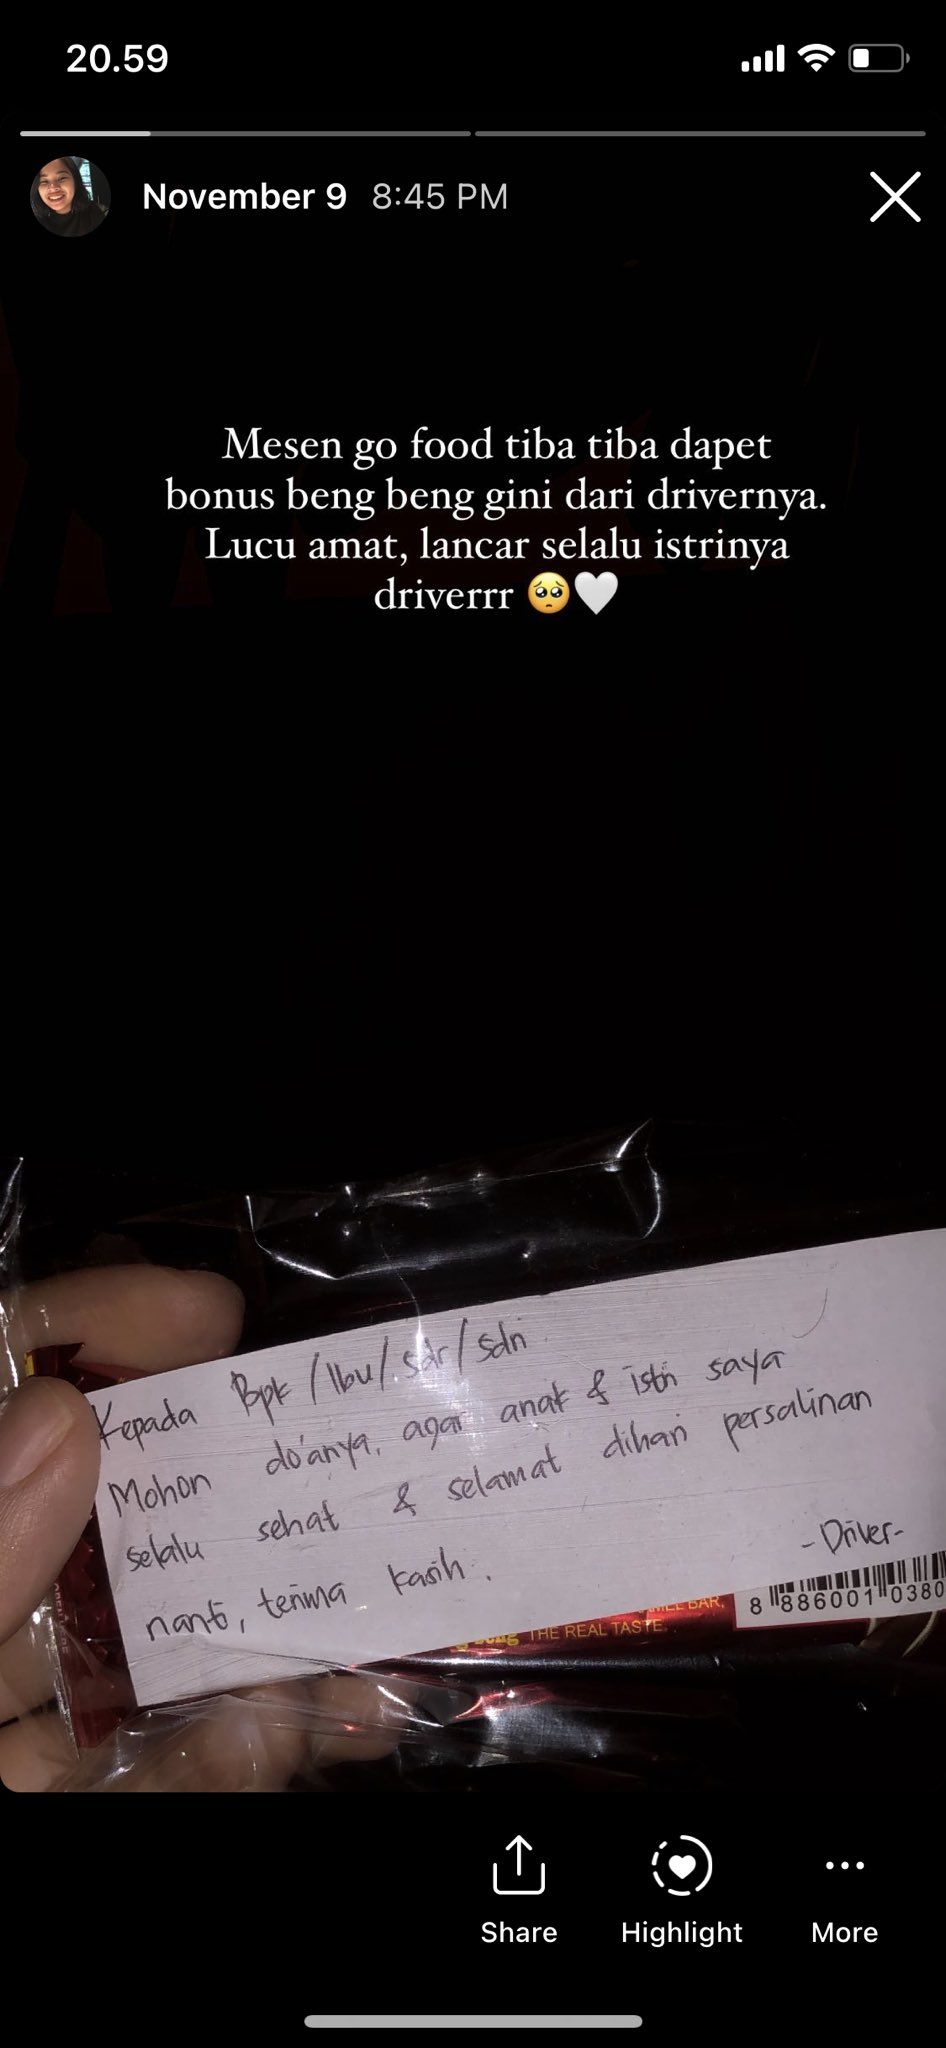 20.59
November 9 8:45 PM
Mesen go food tiba tiba dapet
bonus beng beng gini dari drivernya.
Lucu amat, lancar selalu istrinya
driverrr 🥺🤍
Kepada Bpk/Ibu/sdr/sdri
Mohon do'anya, agar anak & istri saya
selalu sehat & selamat dihari persalinan
nanti, terima kasih.
-Driver-
8 886001 0380
BAR,
THE REAL TASTE
Share Highlight More